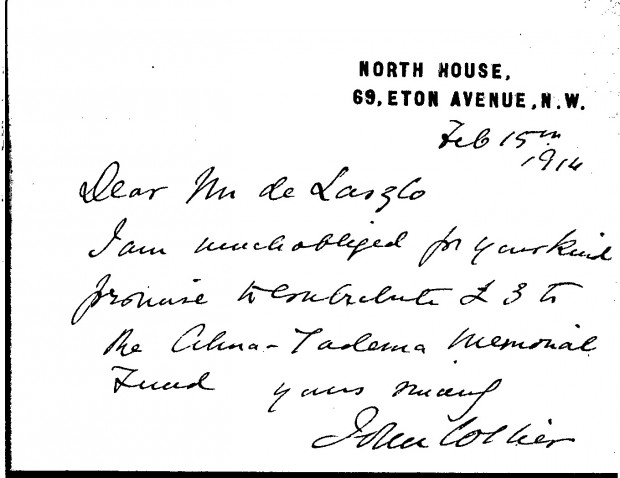 NORTH HOUSE,
69, ETON AVENUE, N.W.
Feb 15th
1914
Dear Mr de Laszlo
I am much obliged for your kind
promise to contribute £3 to
the Alma-Tadema Memorial
Fund yours sincerely
John Collier